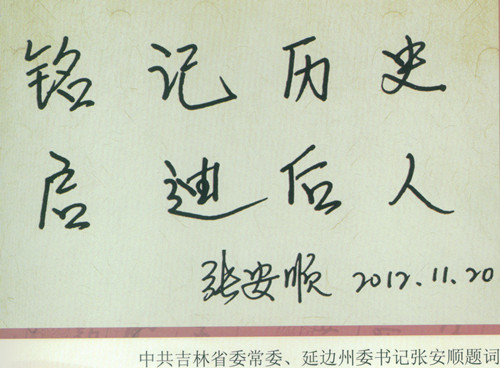 铭记历史
启迪后人
张安顺 2012.11.20
中共吉林省委常委、延边州委书记张安顺题词